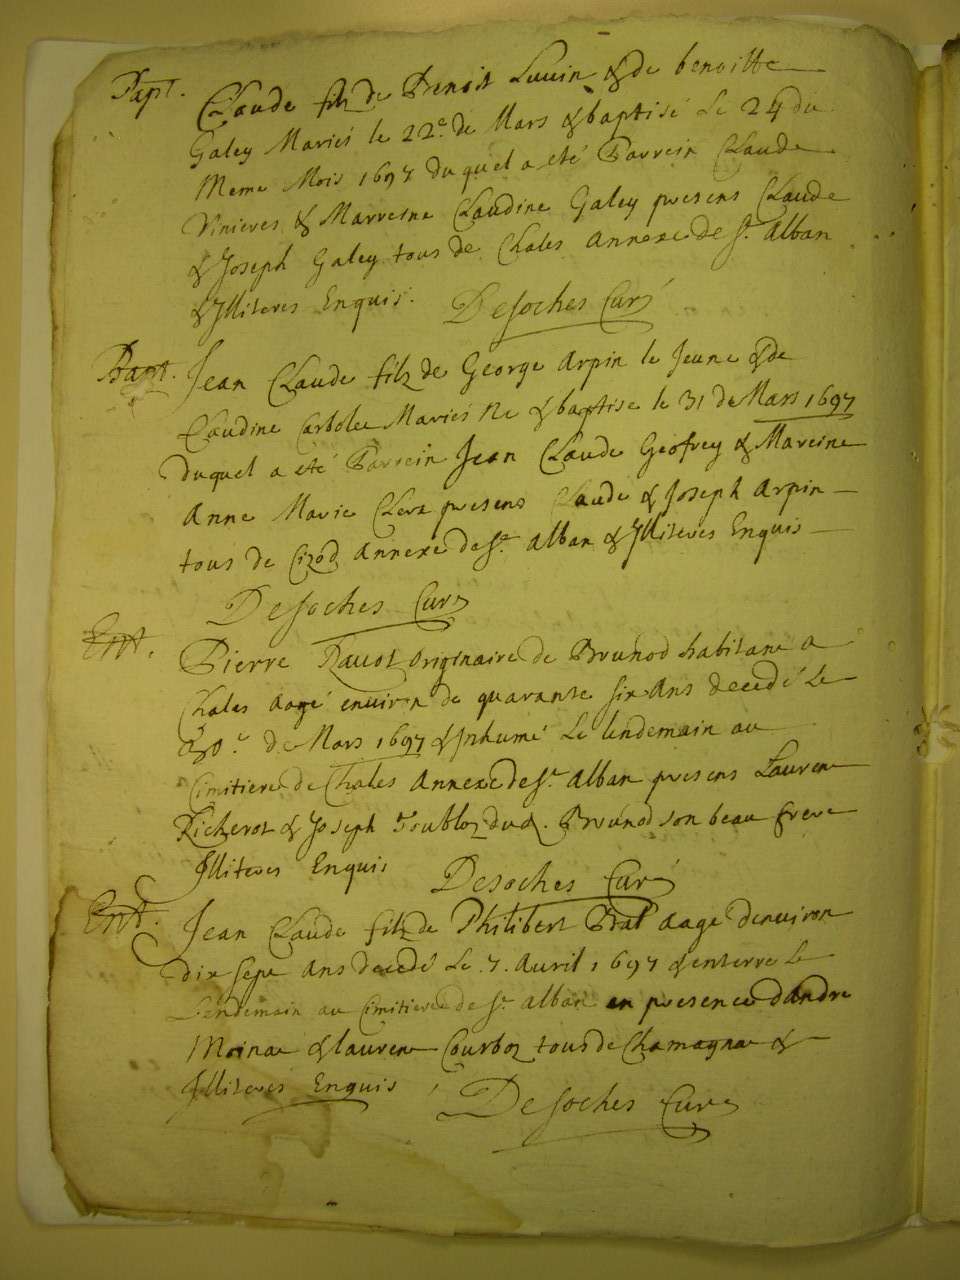 Bapt. Claude filz de Benoit Luuin & de benoitte
Galey Mariés le 22e. de Mars & baptisé Le 24 du
Meme Mois 1697 duquel a eté Parrein Claude
Vinieres & Marreine Claudine Galey presens Claude
& Joseph Galey tous de Chales Annexe de St. Alban
& Illiteres Enquis. Desoches Curé
Bapt. Jean Claude filz de George Arpin le Jeune & de
Claudine Mariés Ne & baptise le 31 de Mars 1697
duquel a eté Parrein Jean Claude Geofrey & Mareine
Anne Marie Clerc presens Claude & Joseph Arpin
tous de Cizod Annexe de St. Alban & Illiteres Enquis
Desoches Curé
Ent. Pierre Ravot Originaire de Brunod habitant a
Chales aagé enuiron de quarante six Ans decedé Le
de Mars 1697 & Inhumé Le lendemain au
Cimitiere de Chales Annexe de St. Alban presens Laurent
Richerot & Joseph dud. Brunod son beau frere
Illiteres Enquis Desoches Curé
Ent. Jean Claude filz de Philibert Prat aagé denuiron
dix sept Ans decedé Le .7. Auril 1697 & enterre Le
Lendemain au Cimitiere de St. Alban en presence dAndre
Moinat & laurent Courboz tous de Chamagnat &
Illiterés Enquis Desoches Curé